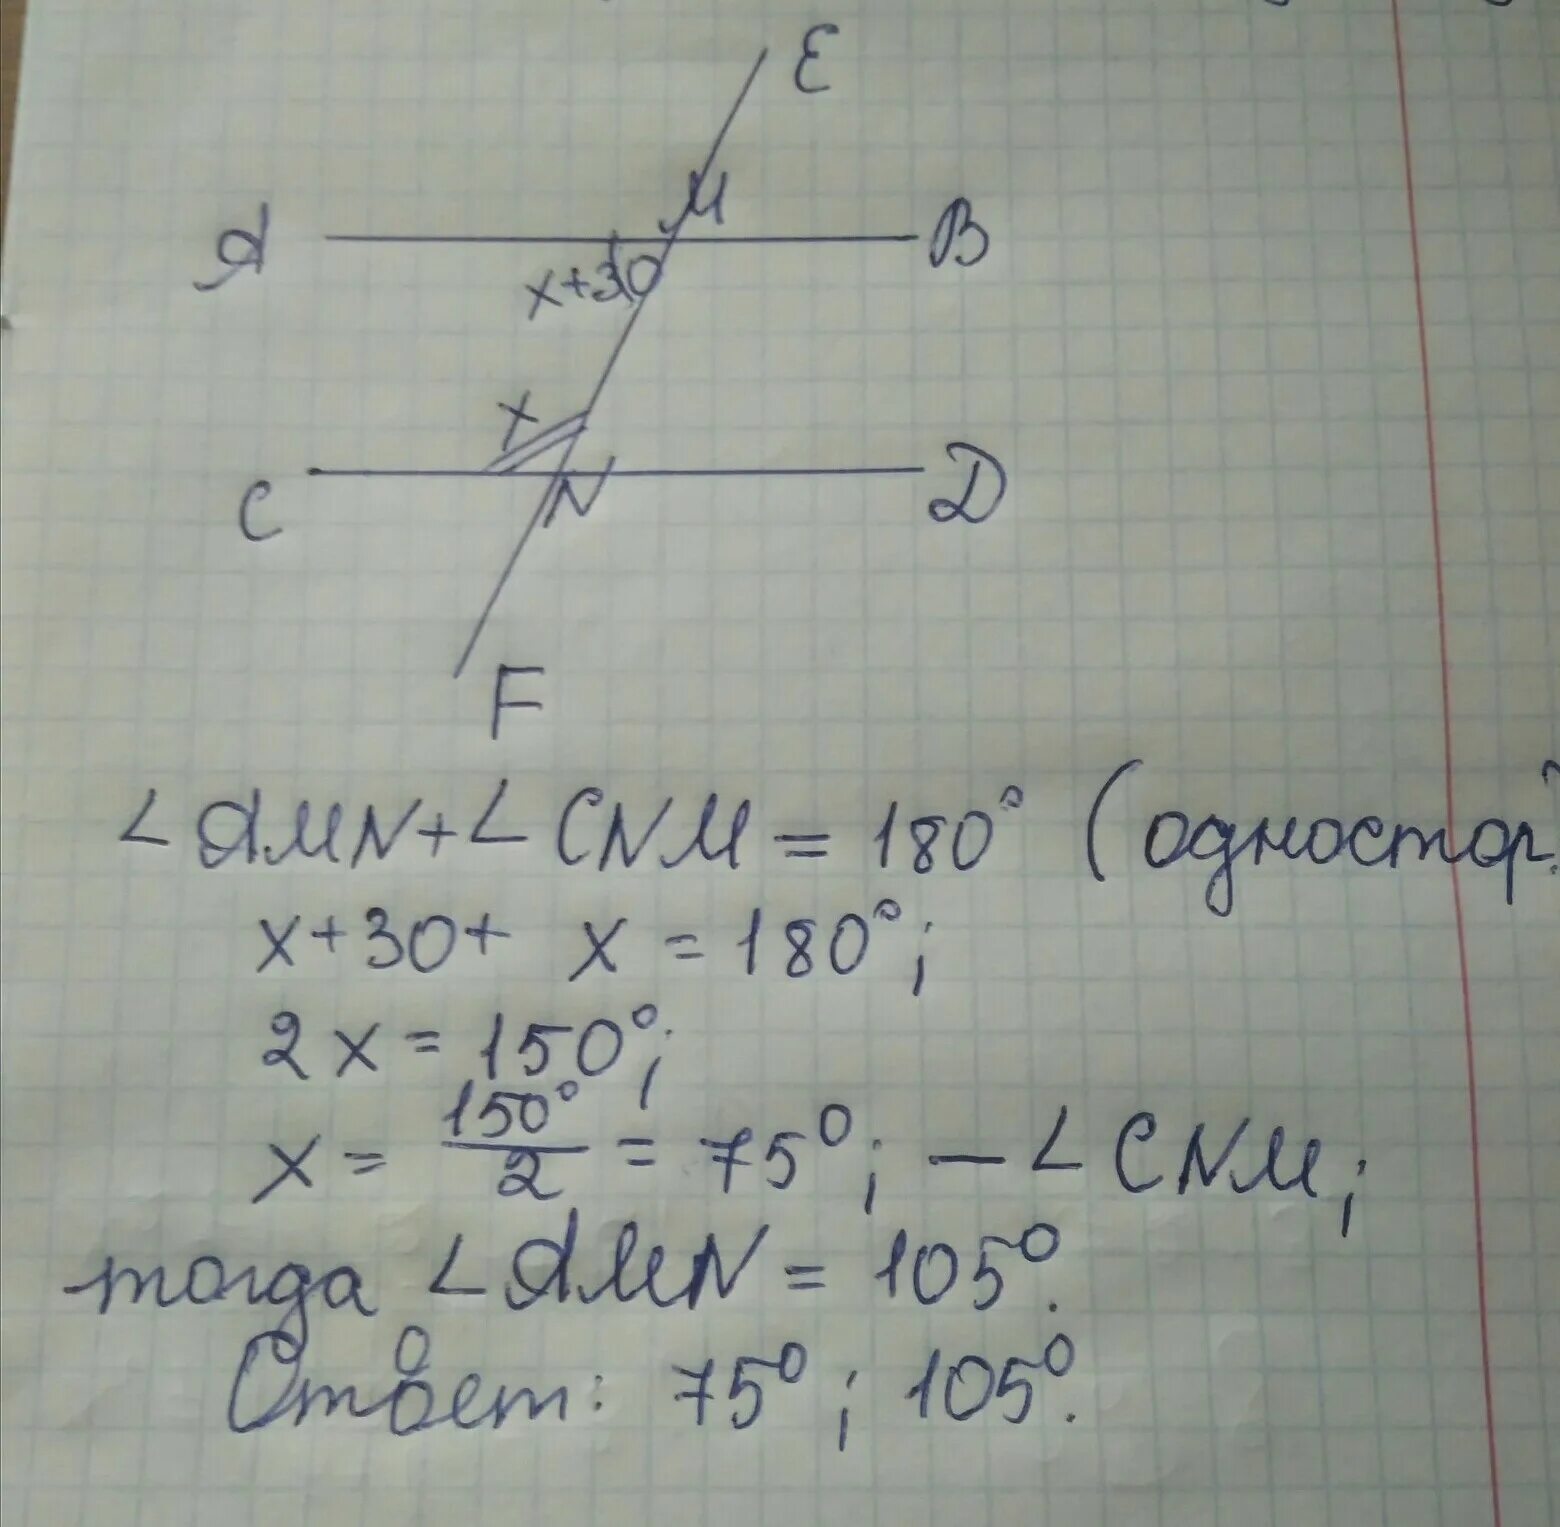 E
M
A B
x+30
x
C N D
F
∠AMN+∠CNM=180° (одностор.
x+30+ x =180°;
2x=150°;
x=150°/2=75°; —∠CNM;
тогда ∠AMN=105°.
Ответ: 75°; 105°.